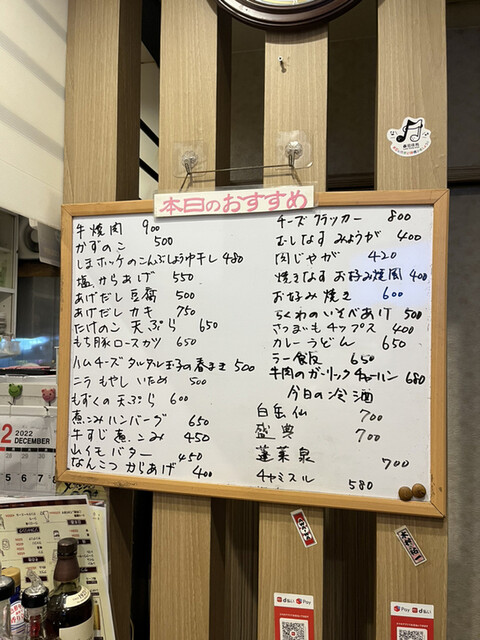 本日のおすすめ
牛焼肉 900
かずのこ 500
しまホッケのこんぶしょうゆ干し 480
塩からあげ 550
あげだし豆腐 500
あげだしカキ 750
たけのこ 天ぷら 650
もち豚ロースカツ 650
ハムチーズタルタル玉子の春まき 500
ニラもやしいため 500
もずくの天ぷら 600
煮こみハンバーグ 650
牛すじ煮こみ 450
山イモバター 450
なんこつからあげ 400
チーズクラッカー 800
むしなすみょうが 400
肉じゃが 420
焼きなすお好み焼風 400
お好み焼き 600
ちくわのいそべあげ 500
さつまいもチップス 400
カレーうどん 650
ラー飯 650
牛肉のガーリックチャーハン 680
今日の冷酒
白岳仙 700
盛典 700
蓬莱泉 700
4ャミスル 580
2
2022
DECEMBER
d払い
Pay
d払い
Pay